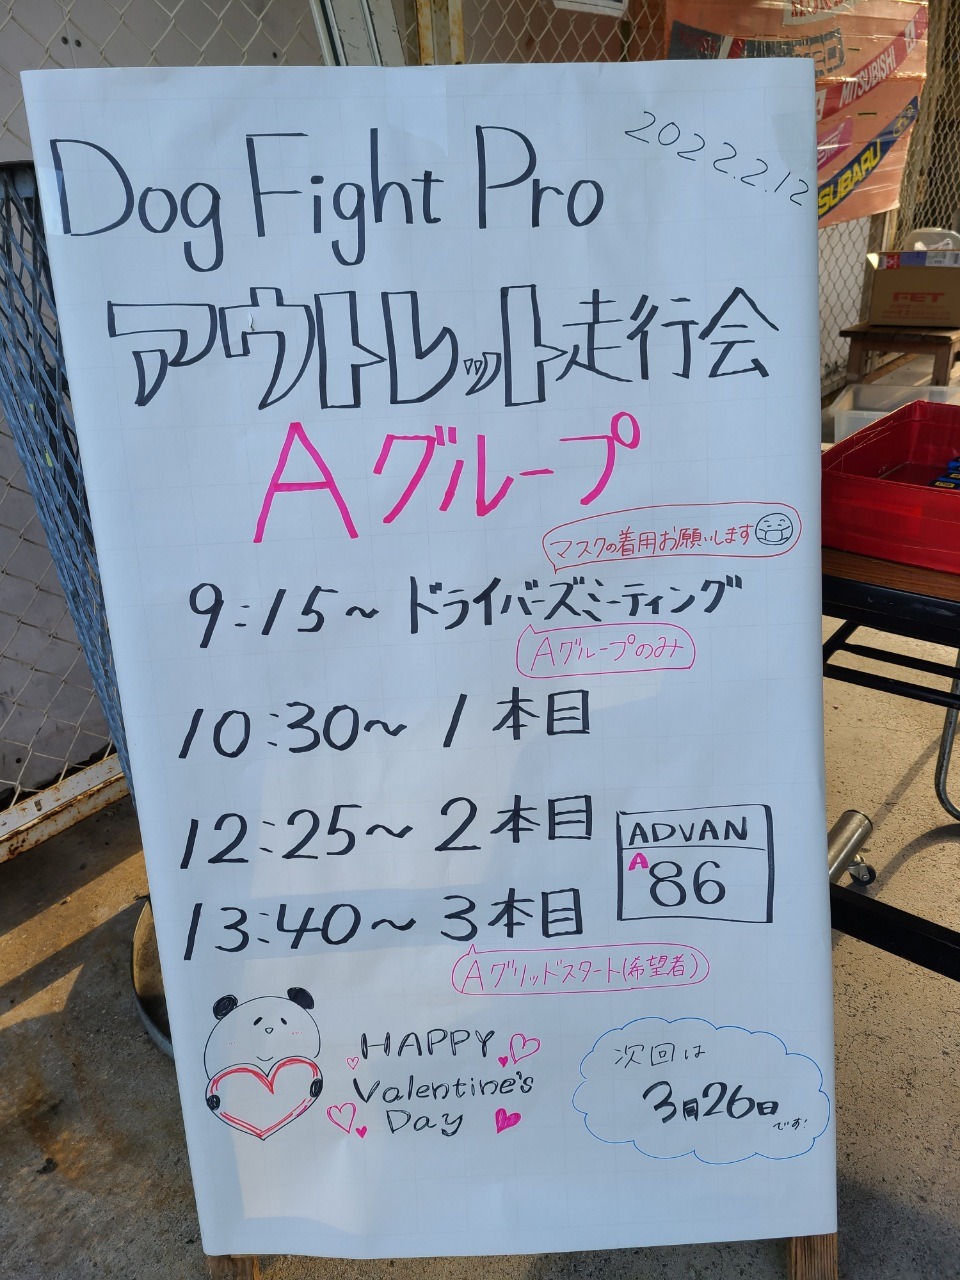 2022.2.12
Dog Fight Pro
アウトレット走行会
Aグループ
マスクの着用お願いします
9:15～ ドライバーズミーティング
Aグループのみ
10:30～ 1本目
12:25～ 2本目
13:40～ 3本目
Aグリッドスタート(希望者)
ADVAN
A
86
HAPPY
Valentine's
Day
次回は
3月26日
です!
MITSUBISHI
SUBARU
FET